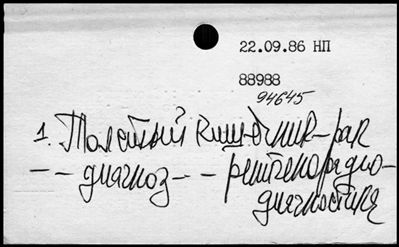 22.09.86 НП
88988
94645
1. Толстый кишечник-рак
-- диагноз -- рентгенорадио-
диагностика